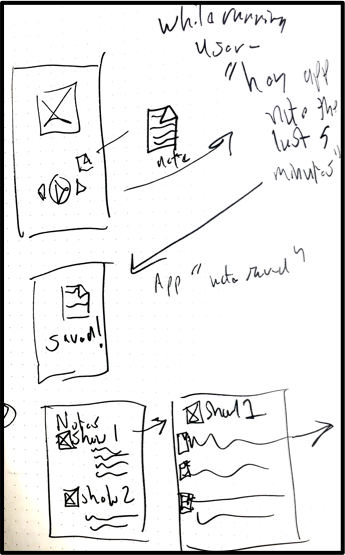 while running
user -
"hey app
note the
last 5
minutes"
note
App "note saved"
saved!
Notes
show 1
show 2
show 1